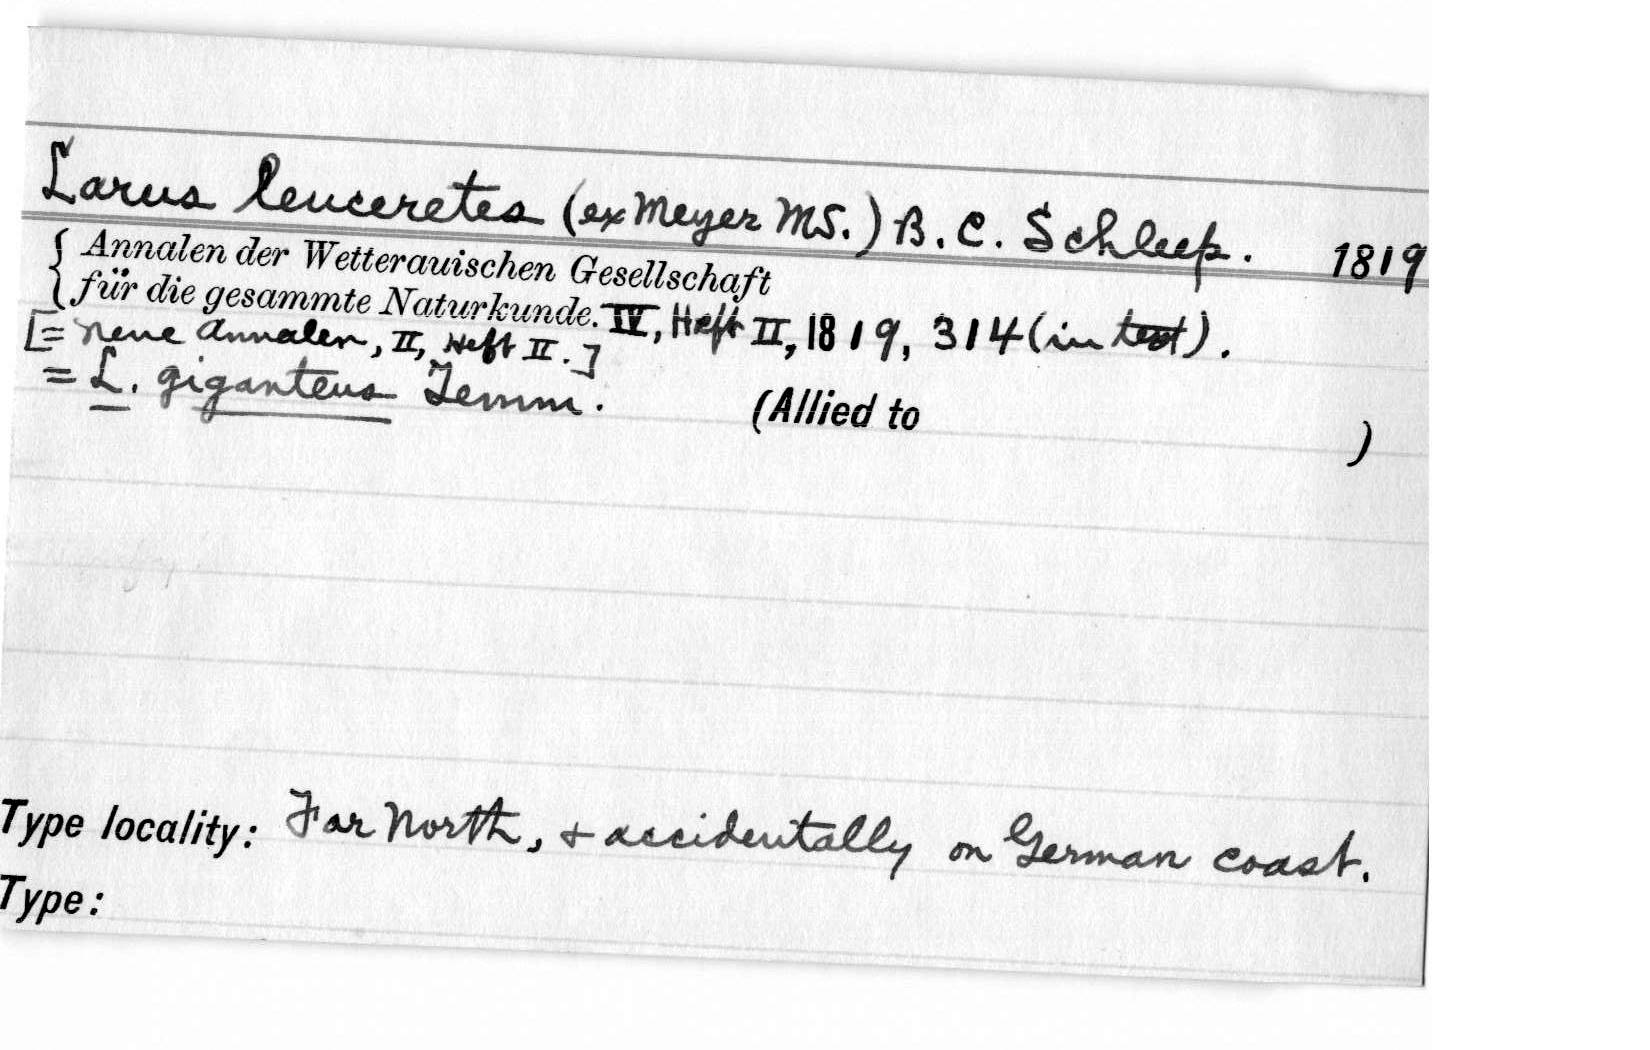 Larus leuceretes (ex Meyer MS.) B. C. Schleep. 1819
{ Annalen der Wetterauischen Gesellschaft
für die gesammte Naturkunde. IV, Heft II, 1819, 314 (in text).
[= Neue Annalen, II, Heft II.]
= L. giganteus Temm. (Allied to )
Type locality: Far North, & accidentally on German coast.
Type: